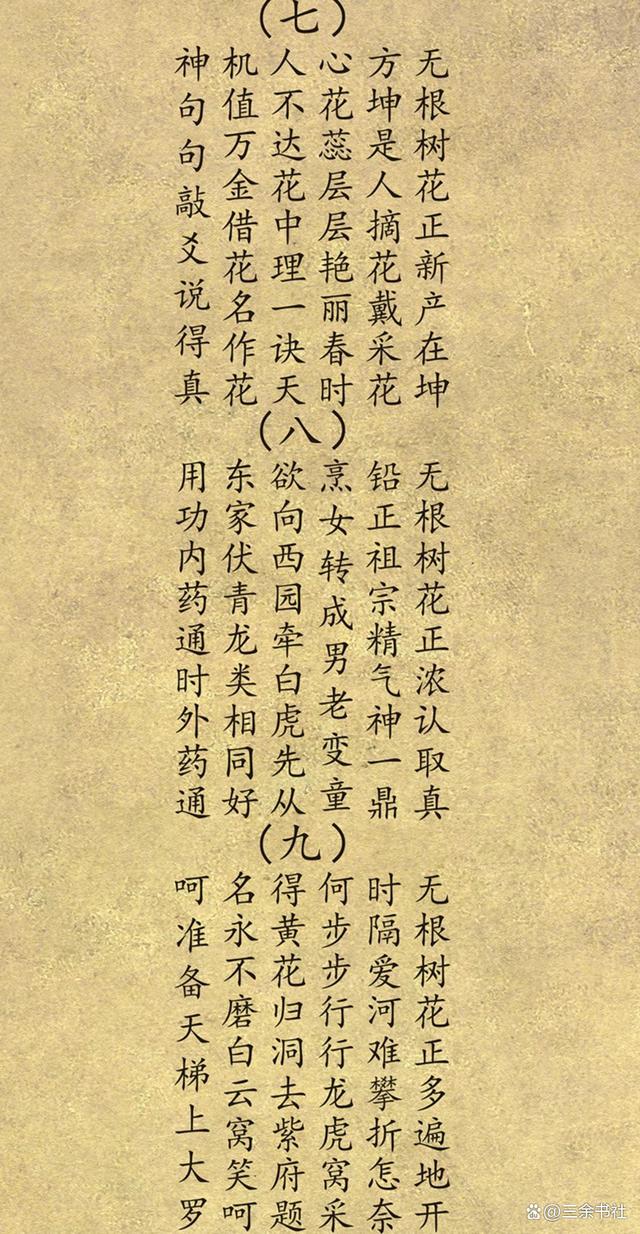 （七）
无根树花正新产在坤
方坤是人摘花戴采花
心花蕊层层艳丽春时
人不达花中理一诀天
机值万金借花名作花
神句句敲爻说得真
（八）
无根树花正浓认取真
铅正祖宗精气神一鼎
烹女转成男老变童
欲向西园牵白虎先从
东家伏青龙类相同好
用功内药通时外药通
（九）
无根树花正多遍地开
时隔爱河难攀折怎奈
何步步行行龙虎窝采
得黄花归洞去紫府题
名永不磨白云窝笑呵
呵准备天梯上大罗
@三余书社